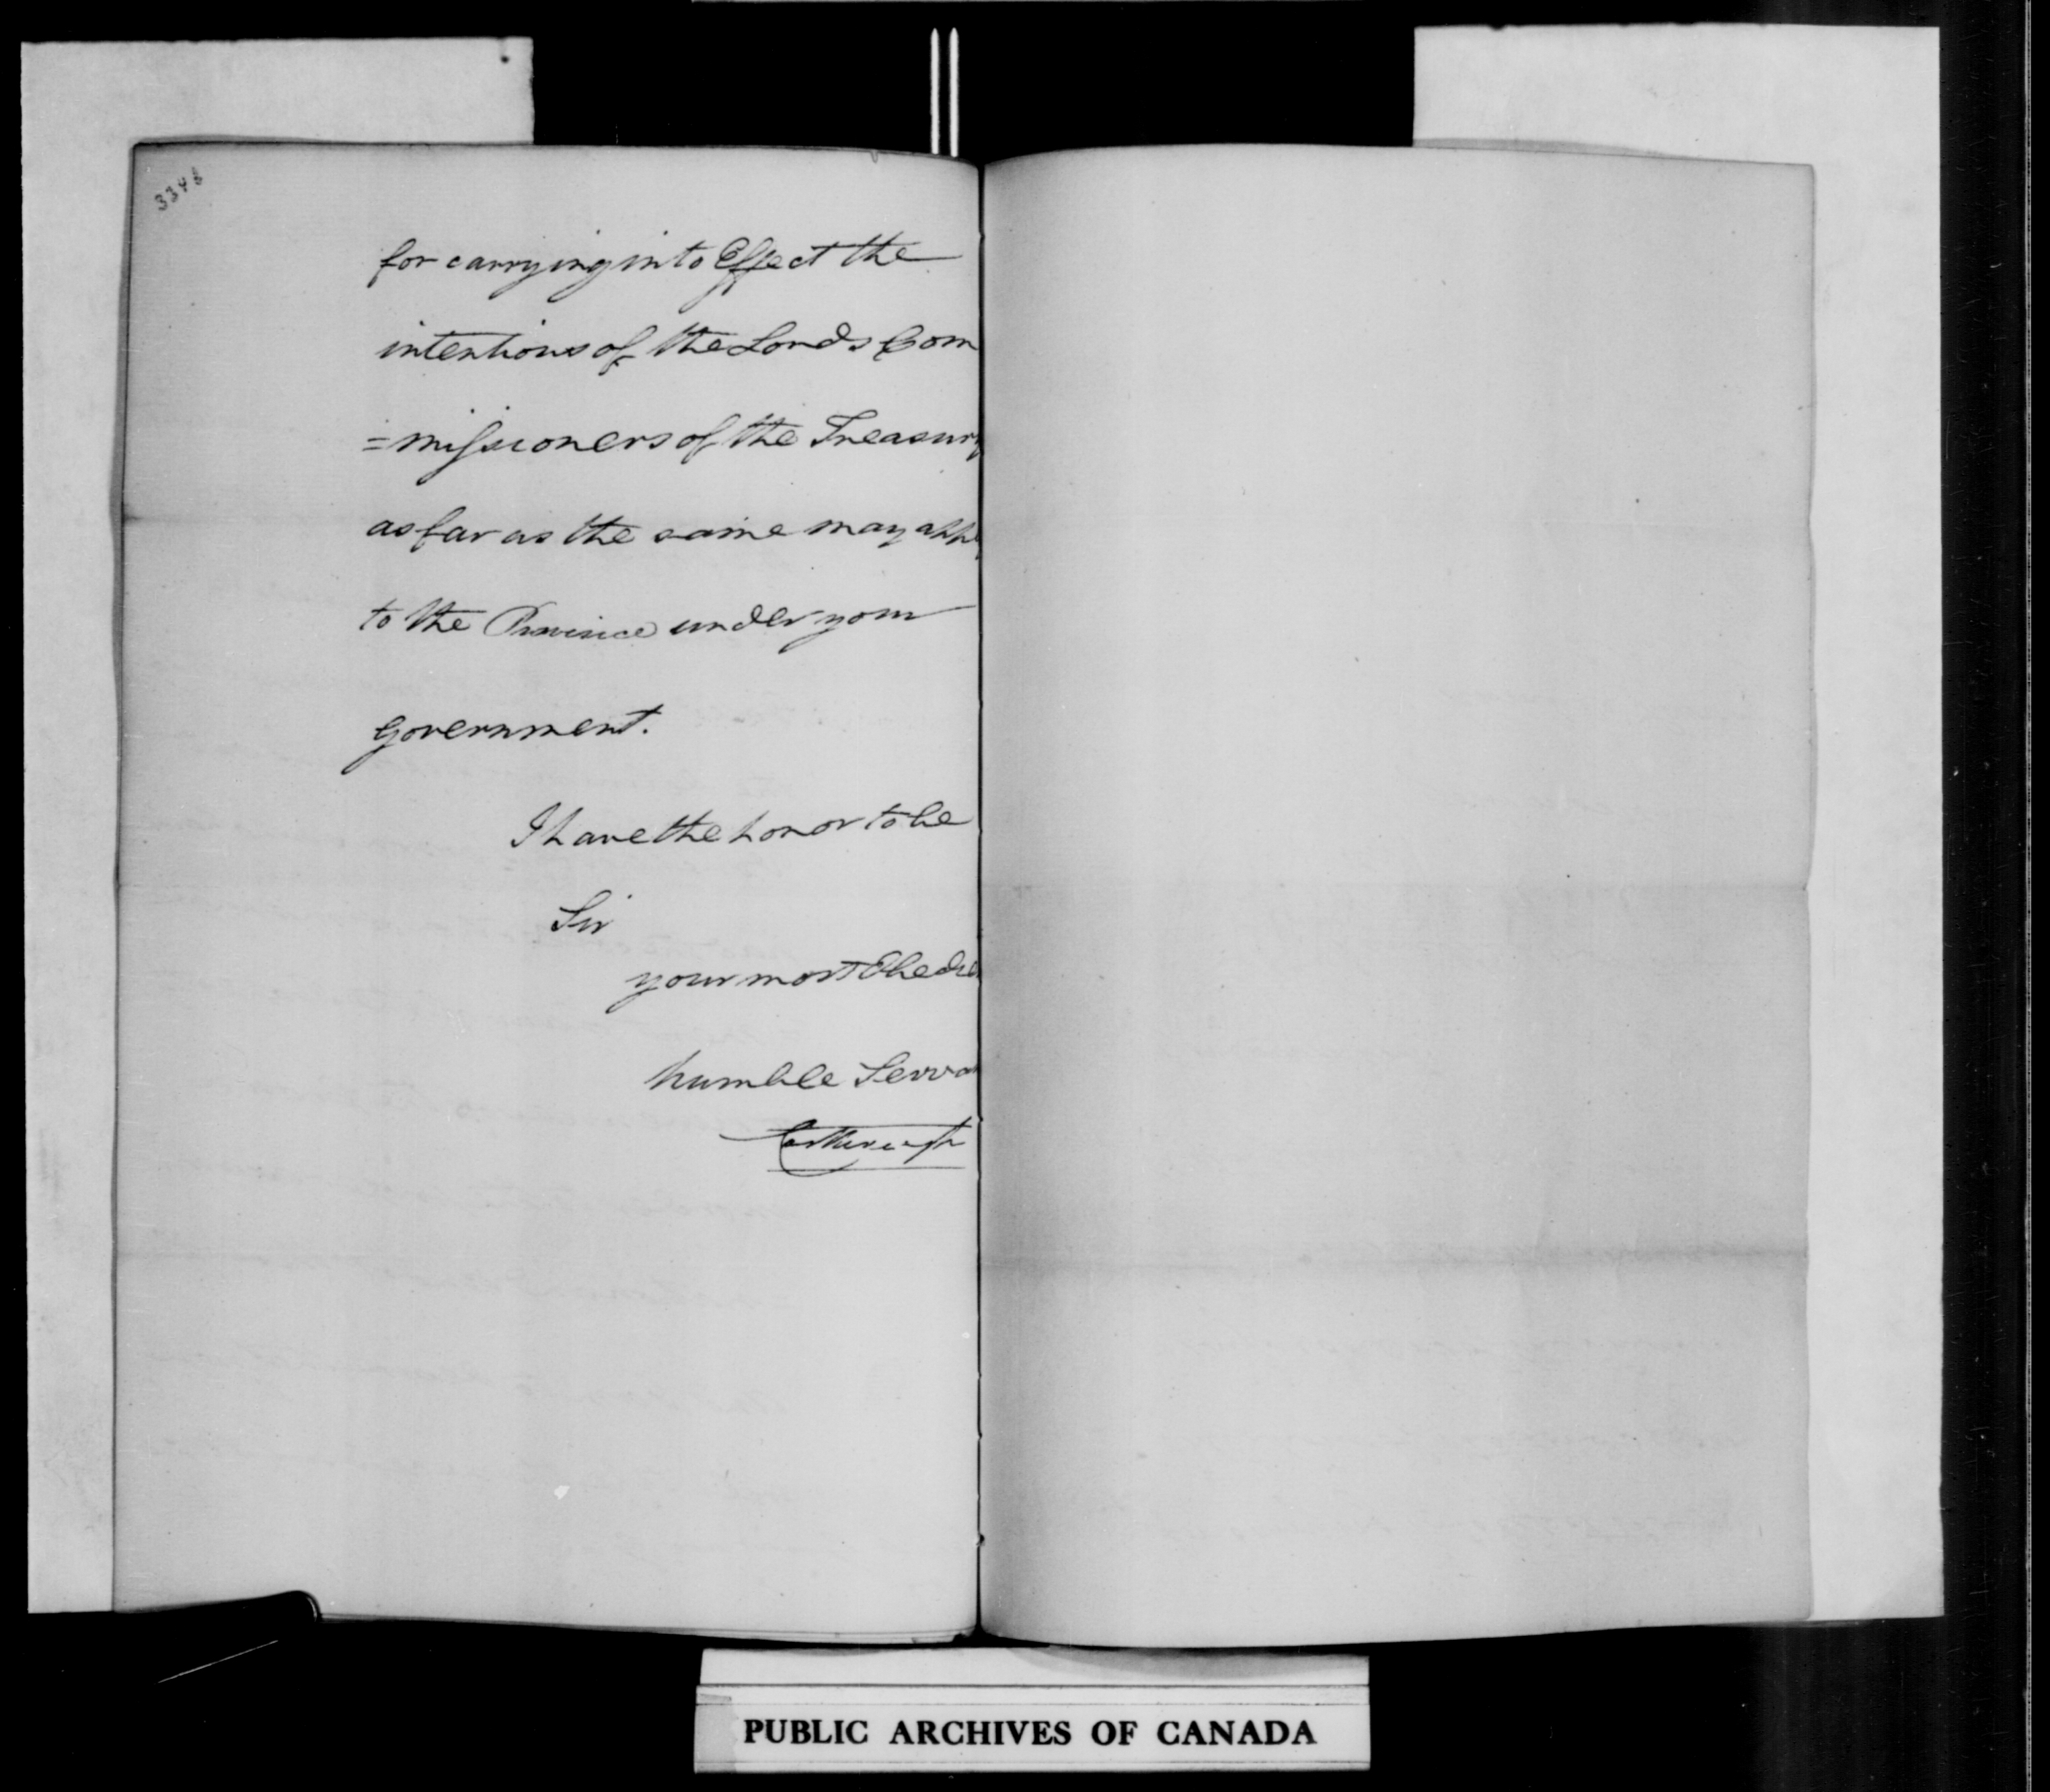 3346
for carrying into Effect the
intentions of the Lords Com
=missioners of the Treasury
as far as the same may appl
to the Province under your
Government.
I have the honor to be
Sir
your most Obedie
humble Serva
Castlereagh
PUBLIC ARCHIVES OF CANADA